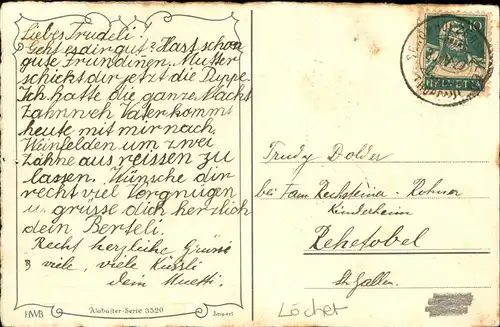 Liebes Trudeli!
Geht es dir gut? Hast schon
gute Fründinen. Mutter
schickt dir jetzt die Puppe.
Ich hatte die ganze Nacht
Zahnweh Vater kommt
heute mit mir nach
Weinfelden um zwei
Zähne aus reissen zu
lassen. Wünsche dir
recht viel Vergnügen
u. grüsse dich herzlich
dein Berteli.
Recht herzliche Grüsse
& viele, viele Küssli
dein Muetti.
HWB
Alabaster-Serie 3520
Import
10
HELVETIA
Trudy Dolder
bei Fam. Rechsteiner-Rohner
Kinderheim
Rehetobel
St. Gallen.
Löcher